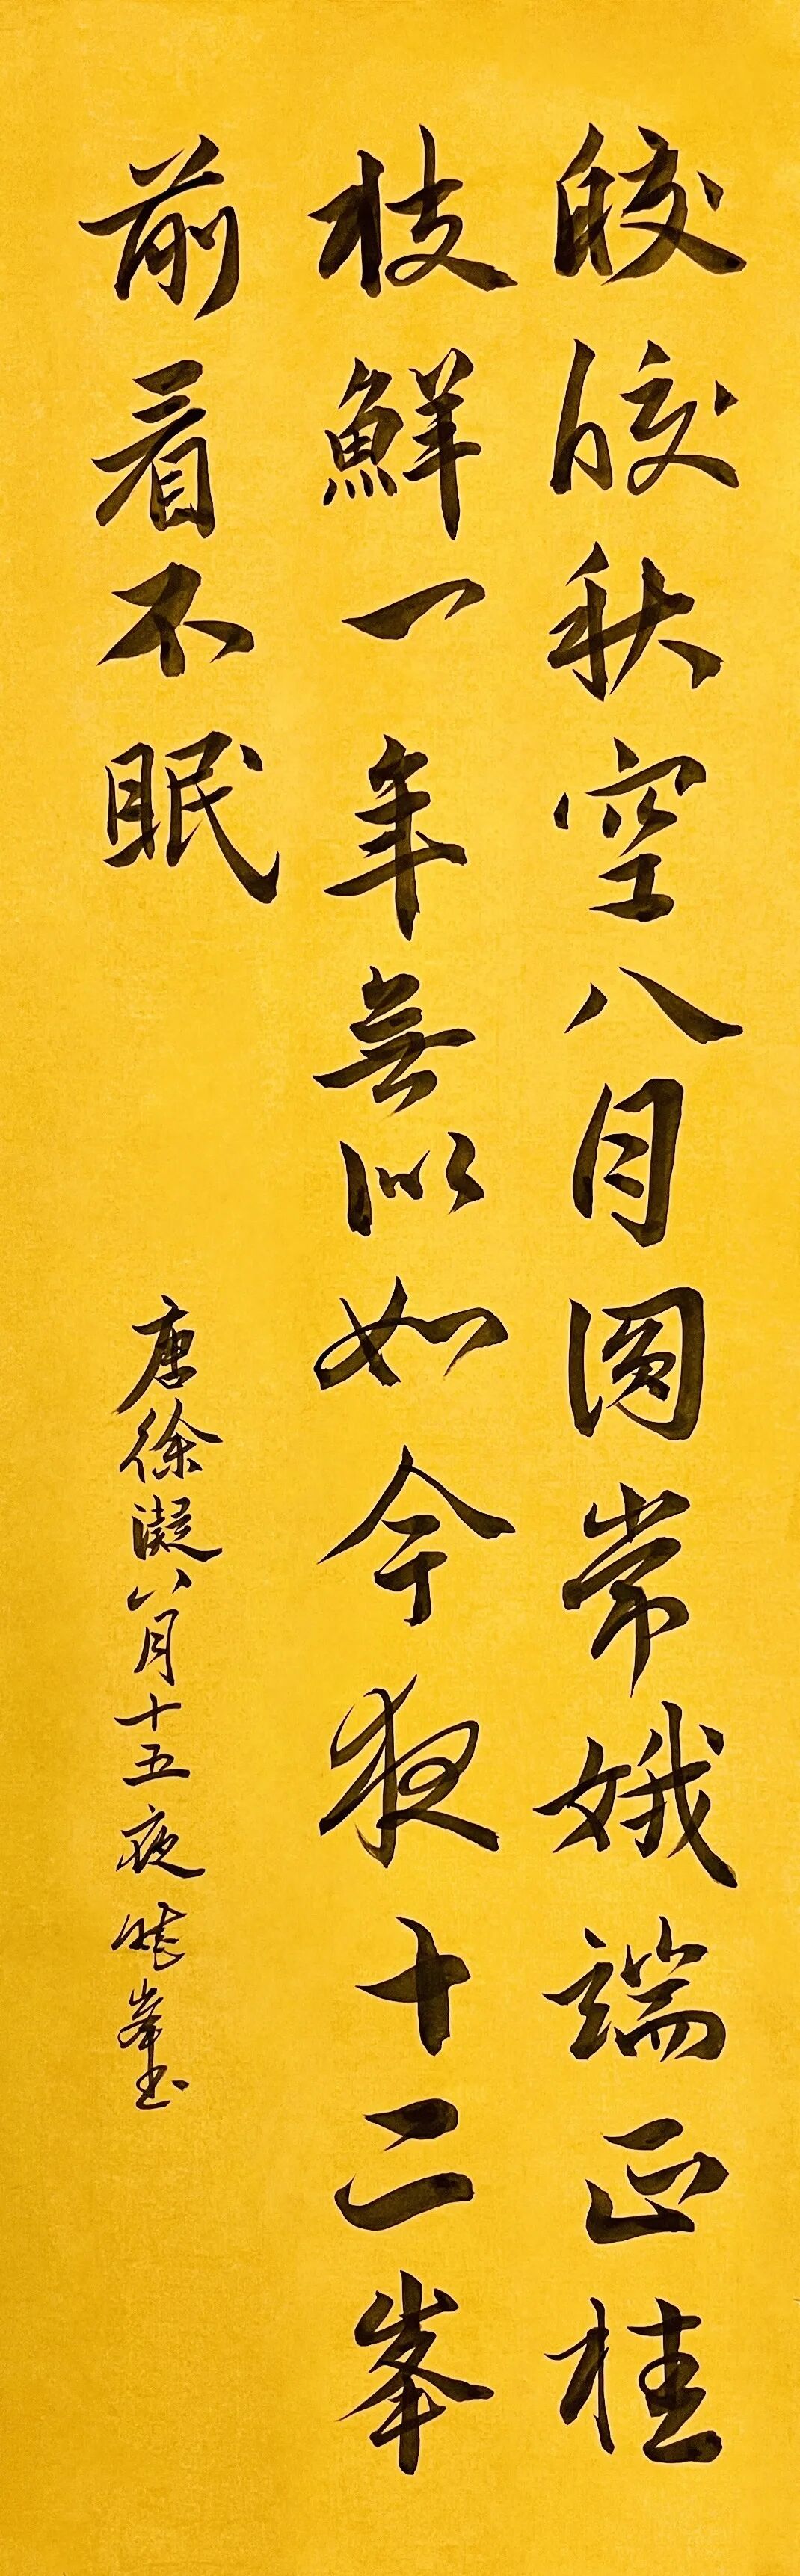 皎皎秋空八月圓常娥端正桂
枝鮮一年無似如今夜十二峯
前看不眠
唐徐凝八月十五夜 峯書